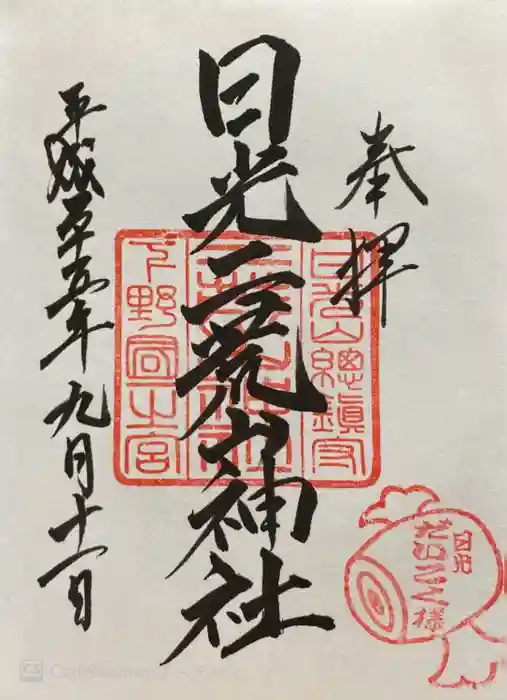 奉拝
日光二荒山神社
平成二十五年九月十一日
日光山總鎮守
下野國一之宮
日光
だいこく様
CS CamScanner